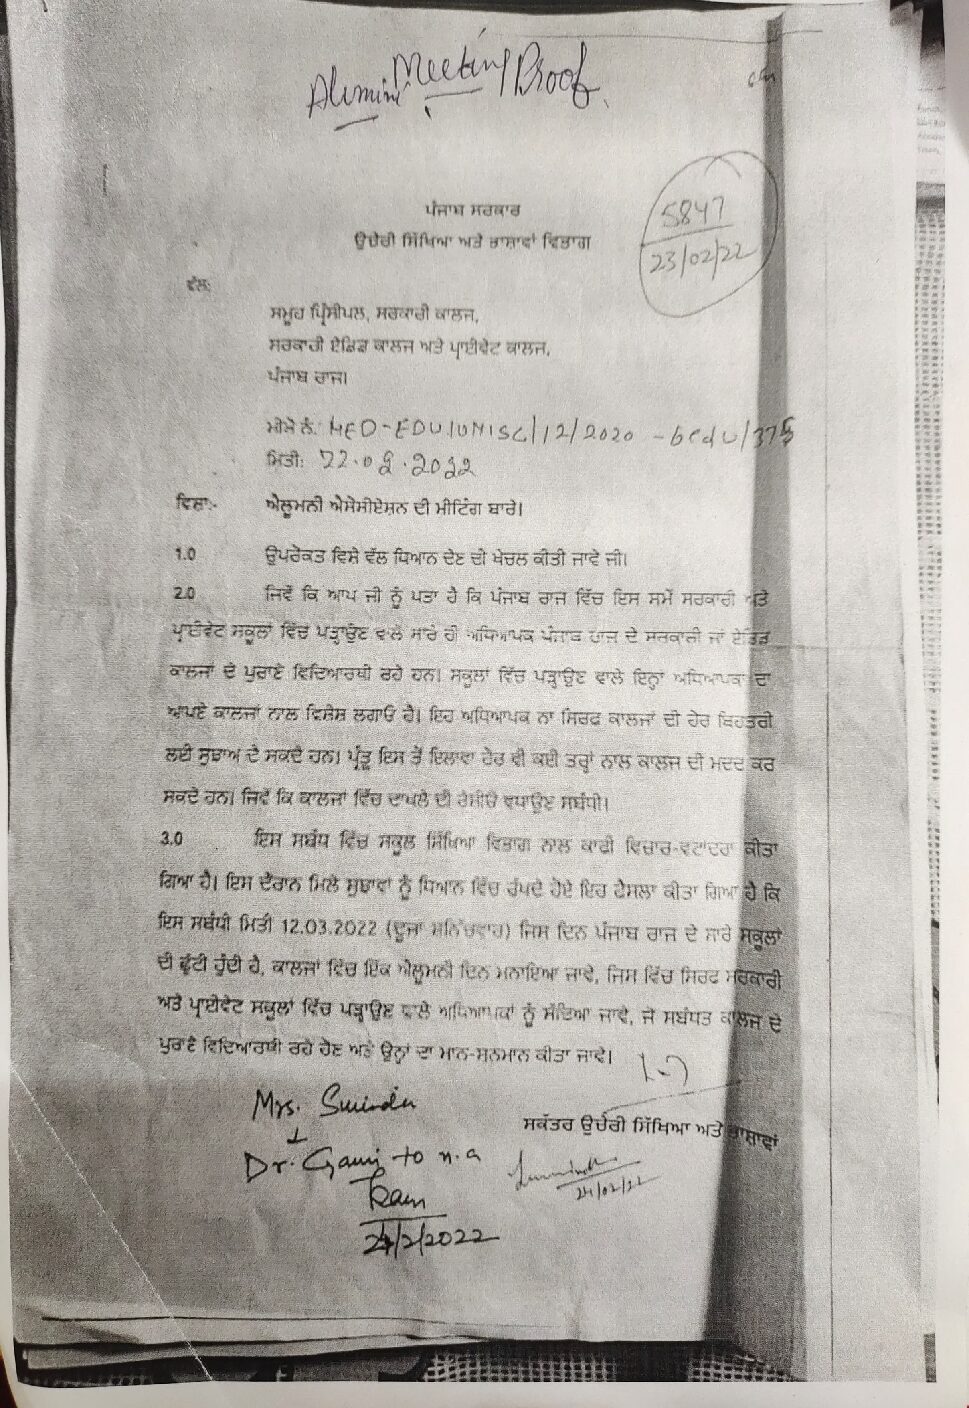 Alumini Meeting Proof.
5847
23/02/22
ਪੰਜਾਬ ਸਰਕਾਰ
ਉਚੇਰੀ ਸਿੱਖਿਆ ਅਤੇ ਭਾਸ਼ਾਵਾਂ ਵਿਭਾਗ
ਵੱਲ:
ਸਮੂਹ ਪ੍ਰਿੰਸੀਪਲ, ਸਰਕਾਰੀ ਕਾਲਜ,
ਸਰਕਾਰੀ ਏਡਿਡ ਕਾਲਜ ਅਤੇ ਪ੍ਰਾਈਵੇਟ ਕਾਲਜ,
ਪੰਜਾਬ ਰਾਜ।
ਮੀਮੋ ਨੰ: HED-EDU/0MISC/12/2020 -6edu/375
ਮਿਤੀ: 22.02.2022
ਵਿਸ਼ਾ:- ਐਲੂਮਨੀ ਐਸੋਸੀਏਸ਼ਨ ਦੀ ਮੀਟਿੰਗ ਬਾਰੇ।
1.0 ਉਪਰੋਕਤ ਵਿਸ਼ੇ ਵੱਲ ਧਿਆਨ ਦੇਣ ਦੀ ਖੇਚਲ ਕੀਤੀ ਜਾਵੇ ਜੀ।
2.0 ਜਿਵੇਂ ਕਿ ਆਪ ਜੀ ਨੂੰ ਪਤਾ ਹੈ ਕਿ ਪੰਜਾਬ ਰਾਜ ਵਿੱਚ ਇਸ ਸਮੇਂ ਸਰਕਾਰੀ ਅਤੇ
ਪ੍ਰਾਈਵੇਟ ਸਕੂਲਾਂ ਵਿੱਚ ਪੜ੍ਹਾਉਣ ਵਾਲੇ ਸਾਰੇ ਹੀ ਅਧਿਆਪਕ ਪੰਜਾਬ ਰਾਜ ਦੇ ਸਰਕਾਰੀ ਜਾਂ ਏਡਿਡ
ਕਾਲਜਾਂ ਦੇ ਪੁਰਾਣੇ ਵਿਦਿਆਰਥੀ ਰਹੇ ਹਨ। ਸਕੂਲਾਂ ਵਿੱਚ ਪੜ੍ਹਾਉਣ ਵਾਲੇ ਇਨ੍ਹਾਂ ਅਧਿਆਪਕਾਂ ਦਾ
ਆਪਣੇ ਕਾਲਜਾਂ ਨਾਲ ਵਿਸ਼ੇਸ਼ ਲਗਾਓ ਹੈ। ਇਹ ਅਧਿਆਪਕ ਨਾ ਸਿਰਫ ਕਾਲਜਾਂ ਦੀ ਹੋਰ ਬਿਹਤਰੀ
ਲਈ ਸੁਝਾਅ ਦੇ ਸਕਦੇ ਹਨ। ਪ੍ਰੰਤੂ ਇਸ ਤੋਂ ਇਲਾਵਾ ਹੋਰ ਵੀ ਕਈ ਤਰ੍ਹਾਂ ਨਾਲ ਕਾਲਜ ਦੀ ਮਦਦ ਕਰ
ਸਕਦੇ ਹਨ। ਜਿਵੇਂ ਕਿ ਕਾਲਜਾਂ ਵਿੱਚ ਦਾਖਲੇ ਦੀ ਰੇਸ਼ੀਓ ਵਧਾਉਣ ਸਬੰਧੀ।
3.0 ਇਸ ਸਬੰਧ ਵਿੱਚ ਸਕੂਲ ਸਿੱਖਿਆ ਵਿਭਾਗ ਨਾਲ ਕਾਫੀ ਵਿਚਾਰ-ਵਟਾਂਦਰਾ ਕੀਤਾ
ਗਿਆ ਹੈ। ਇਸ ਦੌਰਾਨ ਮਿਲੇ ਸੁਝਾਵਾਂ ਨੂੰ ਧਿਆਨ ਵਿੱਚ ਰੱਖਦੇ ਹੋਏ ਇਹ ਫੈਸਲਾ ਕੀਤਾ ਗਿਆ ਹੈ ਕਿ
ਇਸ ਸਬੰਧੀ ਮਿਤੀ 12.03.2022 (ਦੂਜਾ ਸ਼ਨਿੱਚਰਵਾਰ) ਜਿਸ ਦਿਨ ਪੰਜਾਬ ਰਾਜ ਦੇ ਸਾਰੇ ਸਕੂਲਾਂ
ਦੀ ਛੁੱਟੀ ਹੁੰਦੀ ਹੈ, ਕਾਲਜਾਂ ਵਿੱਚ ਇੱਕ ਐਲੂਮਨੀ ਦਿਨ ਮਨਾਇਆ ਜਾਵੇ, ਜਿਸ ਵਿੱਚ ਸਿਰਫ ਸਰਕਾਰੀ
ਅਤੇ ਪ੍ਰਾਈਵੇਟ ਸਕੂਲਾਂ ਵਿੱਚ ਪੜ੍ਹਾਉਣ ਵਾਲੇ ਅਧਿਆਪਕਾਂ ਨੂੰ ਸੱਦਿਆ ਜਾਵੇ, ਜੋ ਸਬੰਧਤ ਕਾਲਜ ਦੇ
ਪੁਰਾਣੇ ਵਿਦਿਆਰਥੀ ਰਹੇ ਹੋਣ ਅਤੇ ਉਨ੍ਹਾਂ ਦਾ ਮਾਨ-ਸਨਮਾਨ ਕੀਤਾ ਜਾਵੇ।
ਸਕੱਤਰ ਉਚੇਰੀ ਸਿੱਖਿਆ ਅਤੇ ਭਾਸ਼ਾਵਾਂ
24/02/22
Mrs. Surinder
Dr. to n.a
24/2/2022